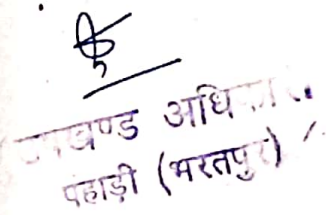 उपखण्ड अधि
पहाड़ी (भरतपुर)